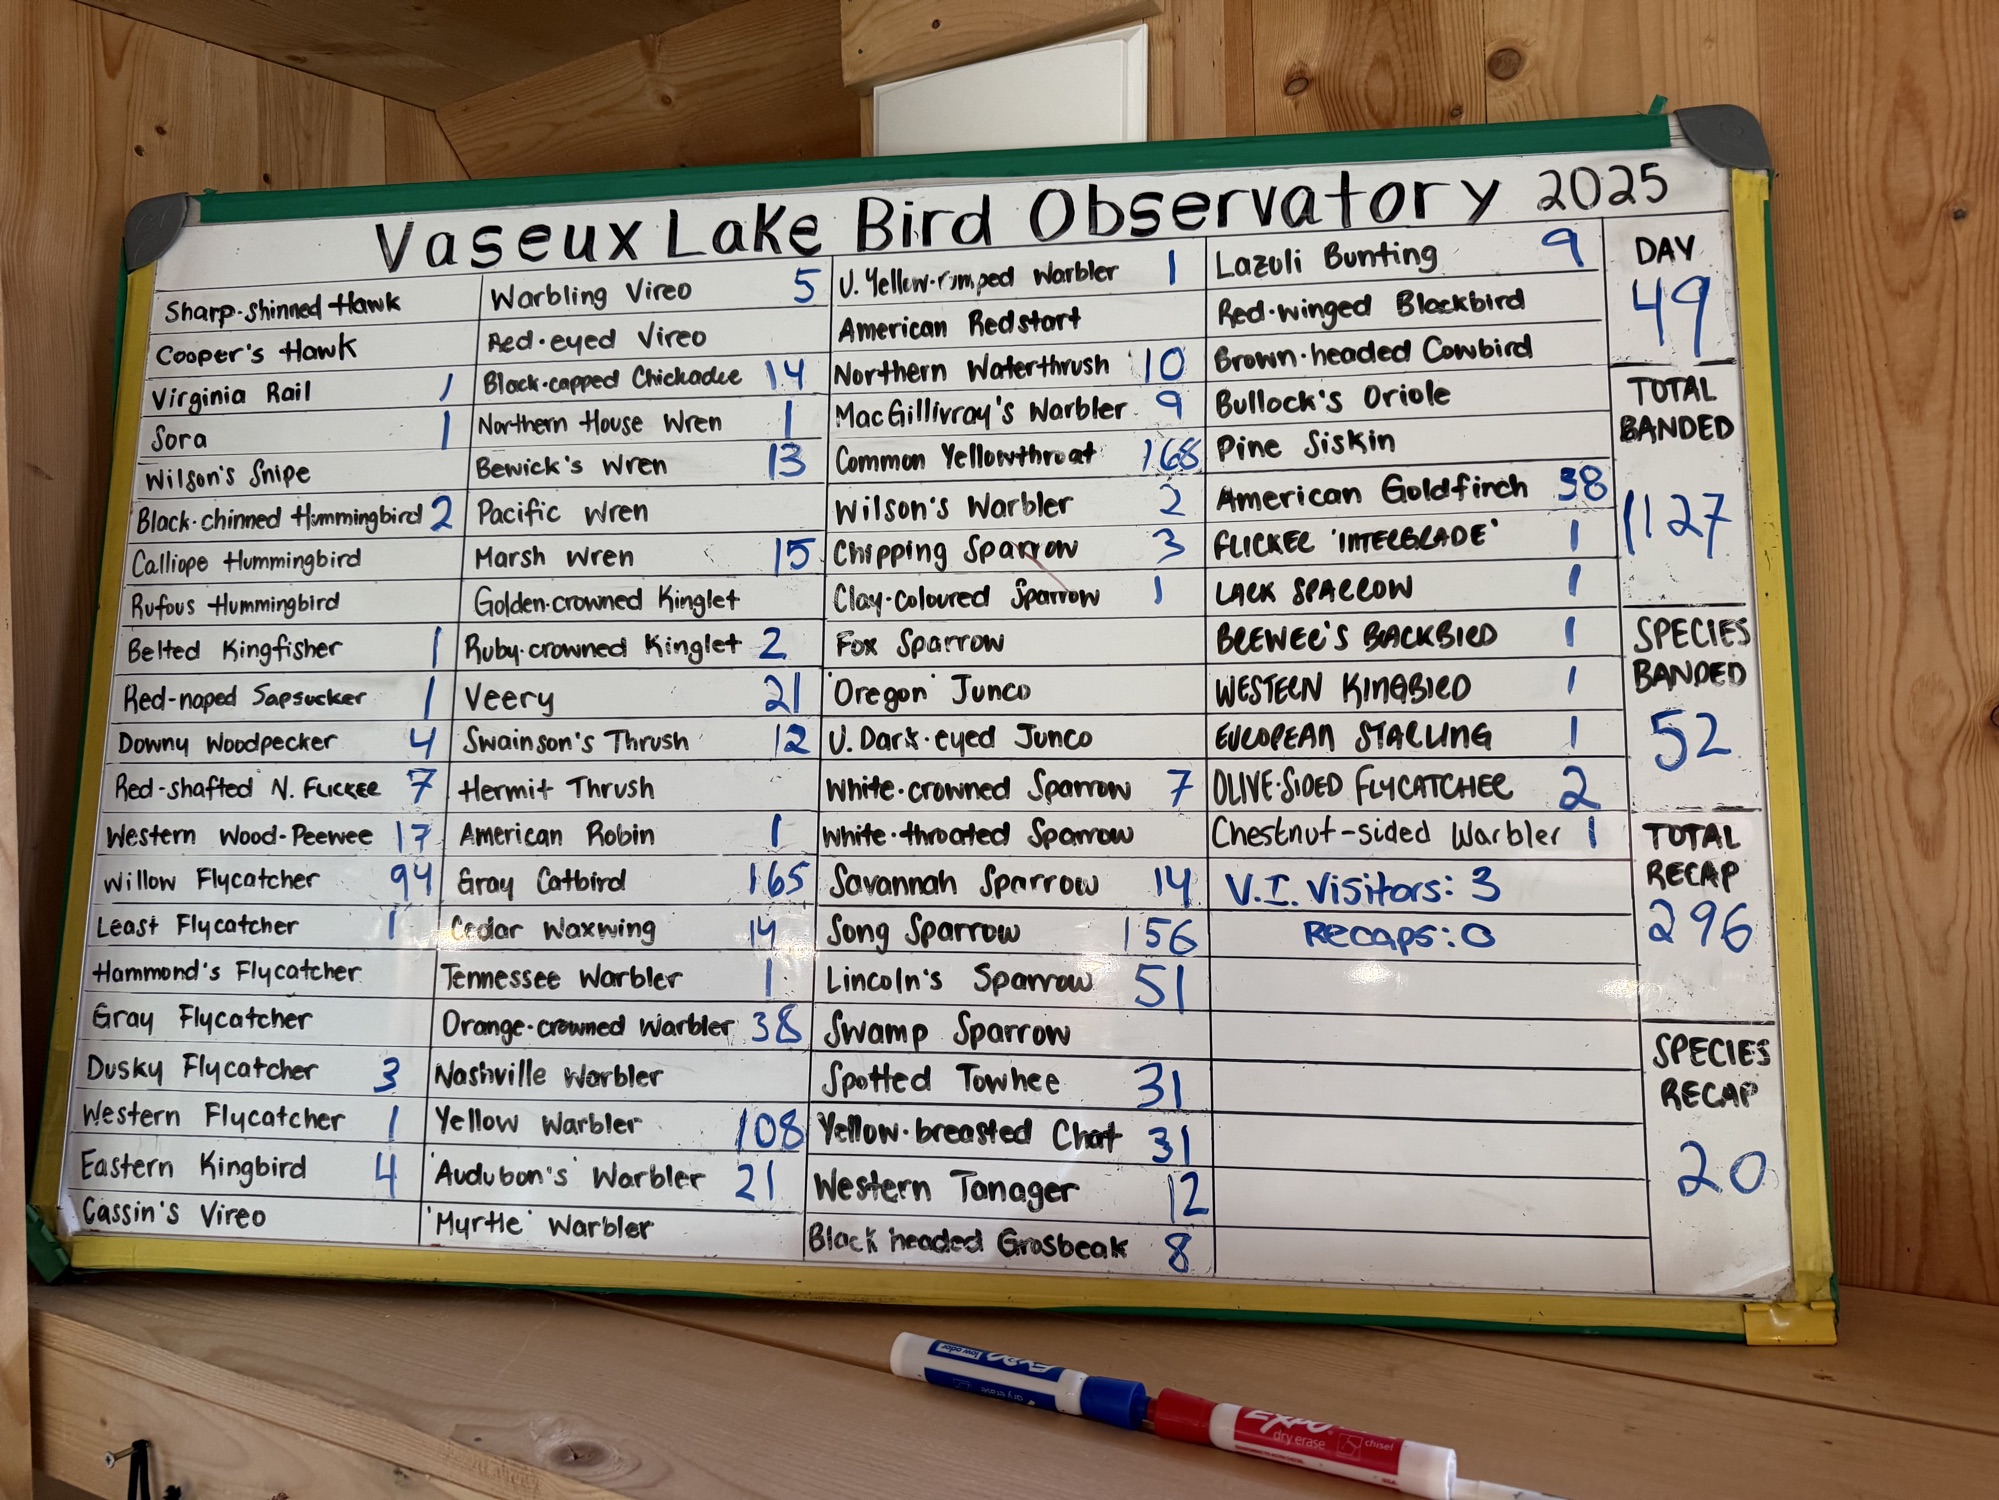 Vaseux Lake Bird Observatory 2025
Sharp-shinned Hawk
Cooper's Hawk
Virginia Rail 1
Sora 1
Wilson's Snipe
Black-chinned Hummingbird 2
Calliope Hummingbird
Rufous Hummingbird
Belted Kingfisher 1
Red-naped Sapsucker 1
Downy Woodpecker 4
Red-shafted N. FLICKER 7
Western Wood-Peewee 17
Willow Flycatcher 94
Least Flycatcher 1
Hammond's Flycatcher
Gray Flycatcher
Dusky Flycatcher 3
Western Flycatcher 1
Eastern Kingbird 4
Cassin's Vireo
Warbling Vireo 5
Red-eyed Vireo
Black-capped Chickadee 14
Northern House Wren 1
Bewick's Wren 13
Pacific Wren
Marsh Wren 15
Golden-crowned Kinglet
Ruby-crowned Kinglet 2
Veery 21
Swainson's Thrush 12
Hermit Thrush
American Robin 1
Gray Catbird 165
Cedar Waxwing 14
Tennessee Warbler 1
Orange-crowned Warbler 38
Nashville Warbler
Yellow Warbler 108
'Audubon's' Warbler 21
'Myrtle' Warbler
U. Yellow-rumped Warbler 1
American Redstart
Northern Waterthrush 10
MacGillivray's Warbler 9
Common Yellowthroat 168
Wilson's Warbler 2
Chipping Sparrow 3
Clay-coloured Sparrow 1
Fox Sparrow
'Oregon' Junco
U. Dark-eyed Junco
White-crowned Sparrow 7
White-throated Sparrow
Savannah Sparrow 14
Song Sparrow 156
Lincoln's Sparrow 51
Swamp Sparrow
Spotted Towhee 31
Yellow-breasted Chat 31
Western Tanager 12
Black headed Grosbeak 8
Lazuli Bunting 9
Red-winged Blackbird
Brown-headed Cowbird
Bullock's Oriole
Pine Siskin
American Goldfinch 38
FLICKER 'INTERGRADE' 1
LARK SPARROW 1
BREWER'S BLACKBIRD 1
WESTERN KINGBIRD 1
EUROPEAN STARLING 1
OLIVE-SIDED FLYCATCHER 2
Chestnut-sided Warbler 1
V.I. Visitors: 3
Recaps: 0
DAY
49
TOTAL
BANDED
1127
SPECIES
BANDED
52
TOTAL
RECAP
296
SPECIES
RECAP
20
EXPO
low odor
dry erase
EXPO
dry erase
chisel